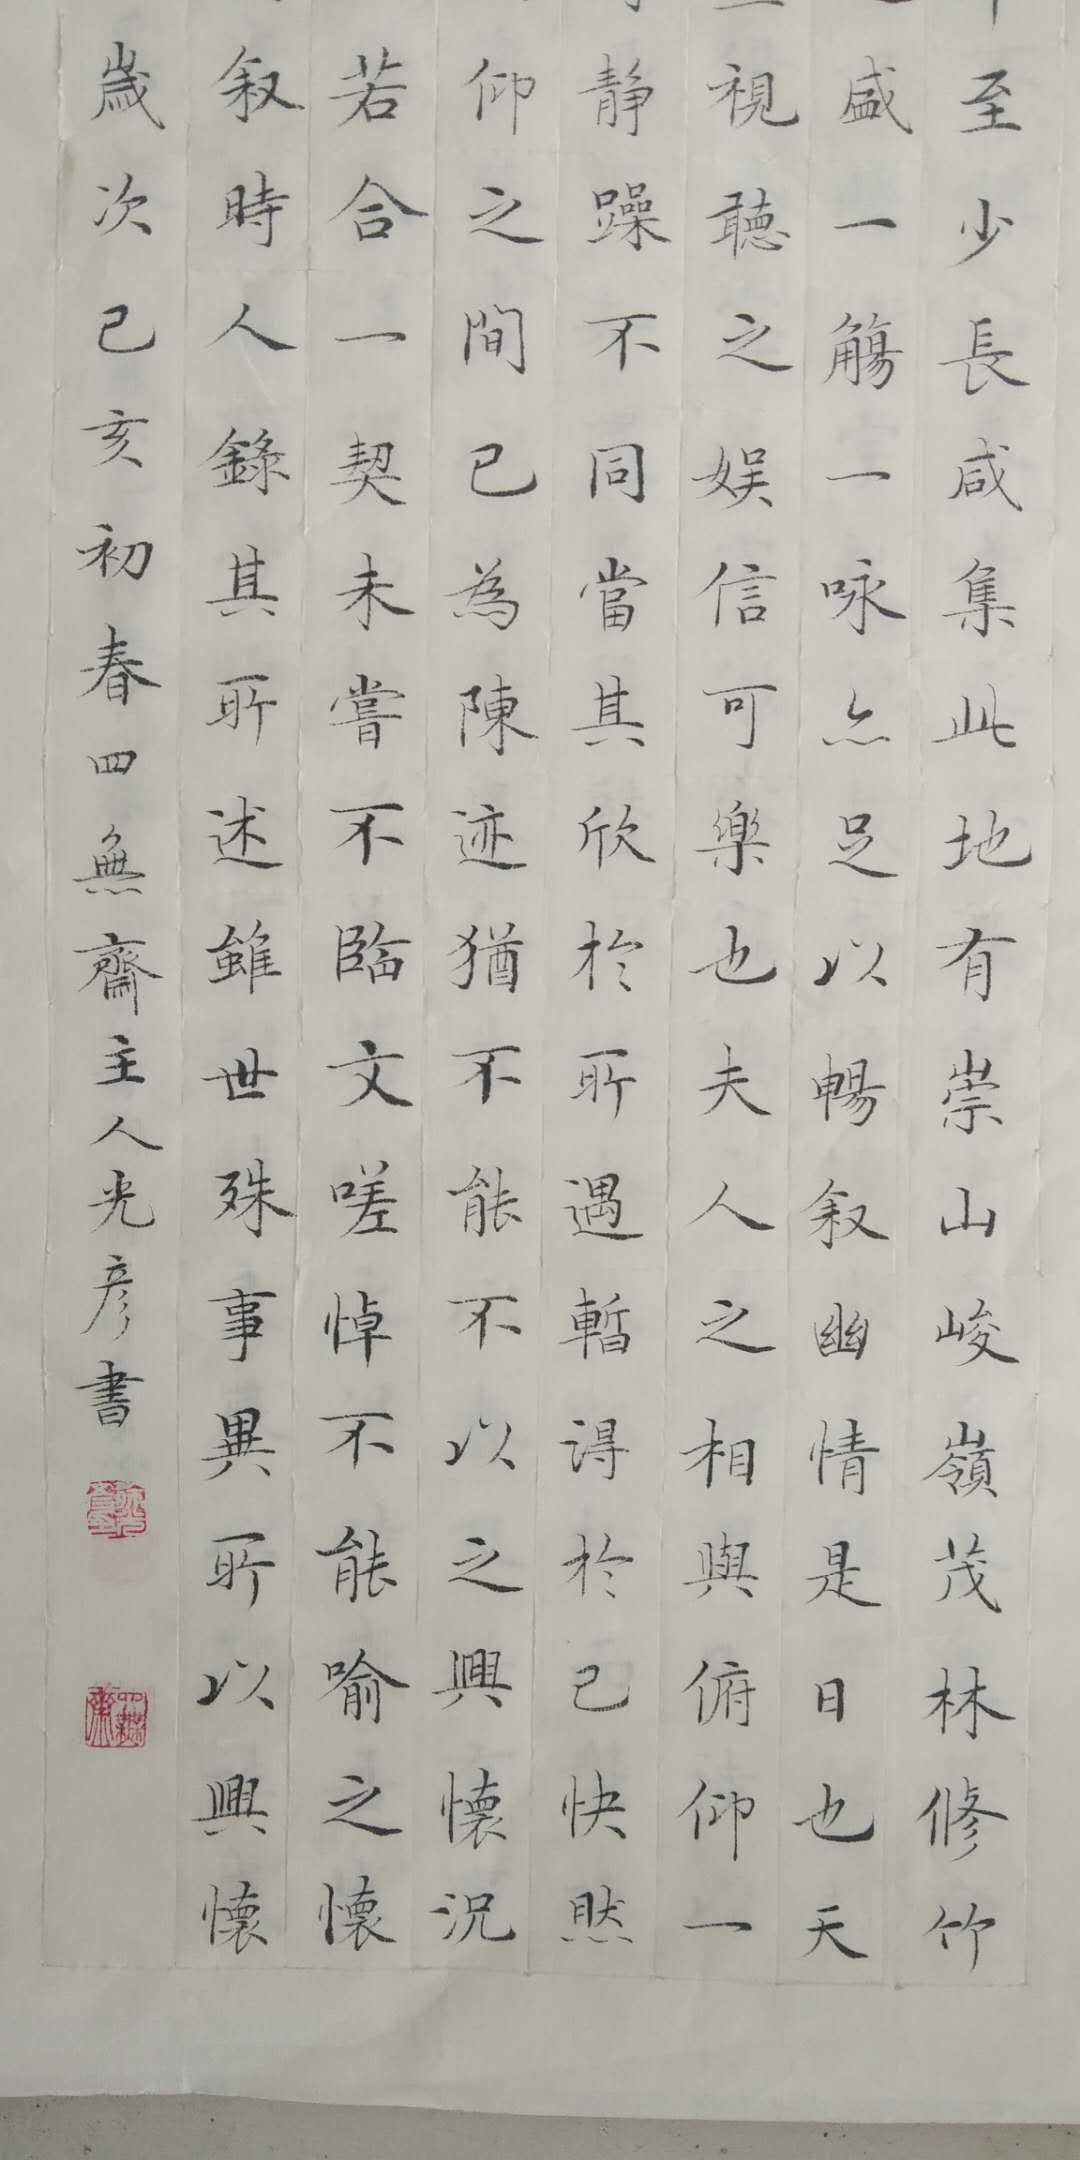 至少長咸集此地有崇山峻嶺茂林修竹
盛一觴一咏亦足以暢叙幽情是日也天
視聽之娱信可樂也夫人之相與俯仰一
靜躁不同當其欣於所遇暫得於己快然
仰之間已為陳迹猶不能不以之興懷况
若合一契未嘗不臨文嗟悼不能喻之懷
叙時人錄其所述雖世殊事異所以興懷
歲次己亥初春四無齋主人光彦書